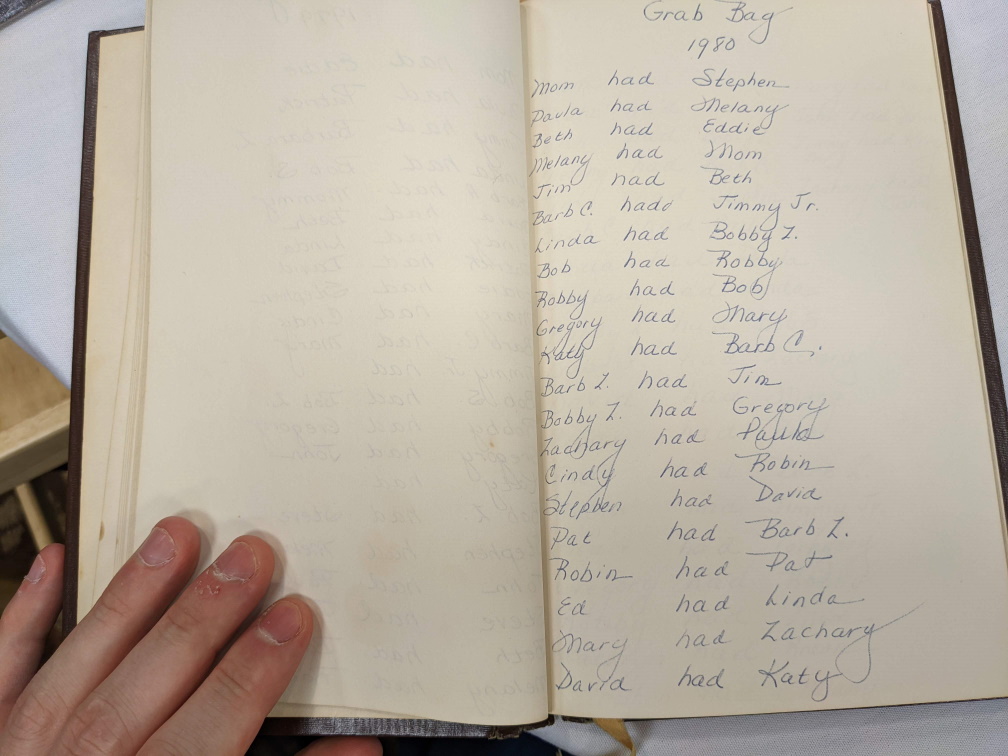 Grab Bag
1980
Mom had Stephen
Paula had Melany
Beth had Eddie
Melany had Mom
Jim had Beth
Barb C. hadd Jimmy Jr.
Linda had Bobby Z.
Bob had Robby
Robby had Bob
Gregory had Mary
Katy had Barb C.
Barb Z. had Jim
Bobby Z. had Gregory
Zachary had Paula
Cindy had Robin
Stephen had David
Pat had Barb Z.
Robin had Pat
Ed had Linda
Mary had Zachary
David had Katy